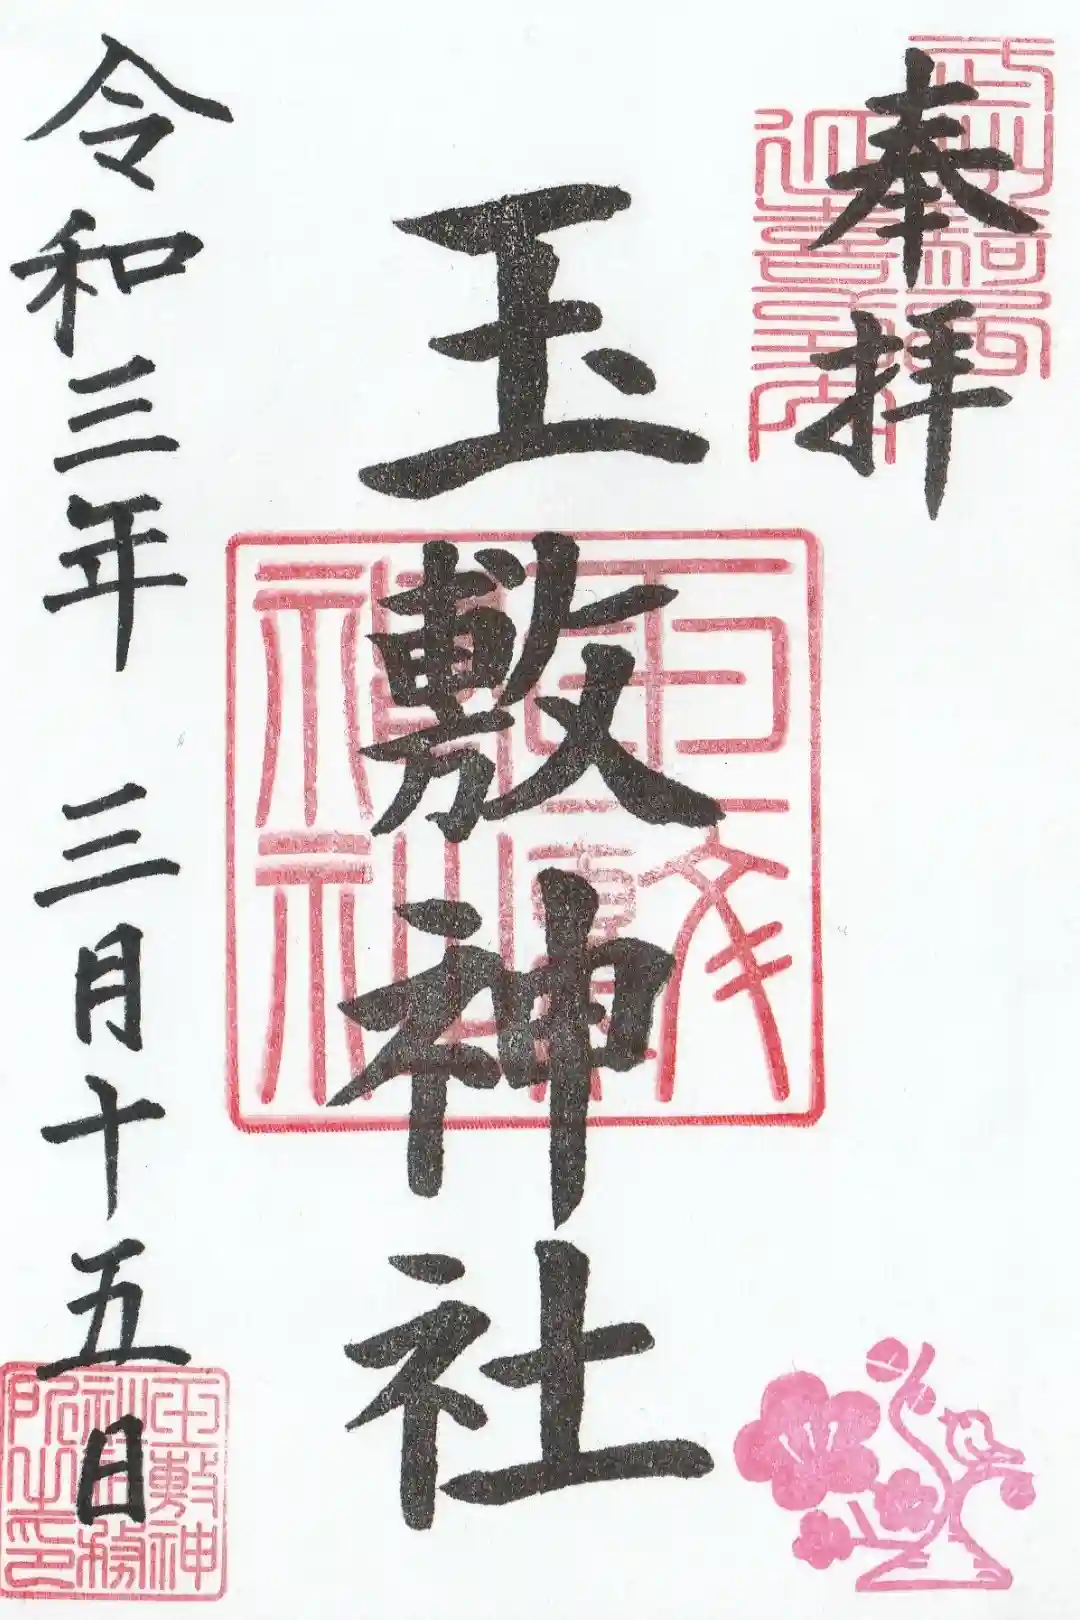 奉拝
玉敷神社
令和三年 三月十五日
玉敷神
社社務
所之印